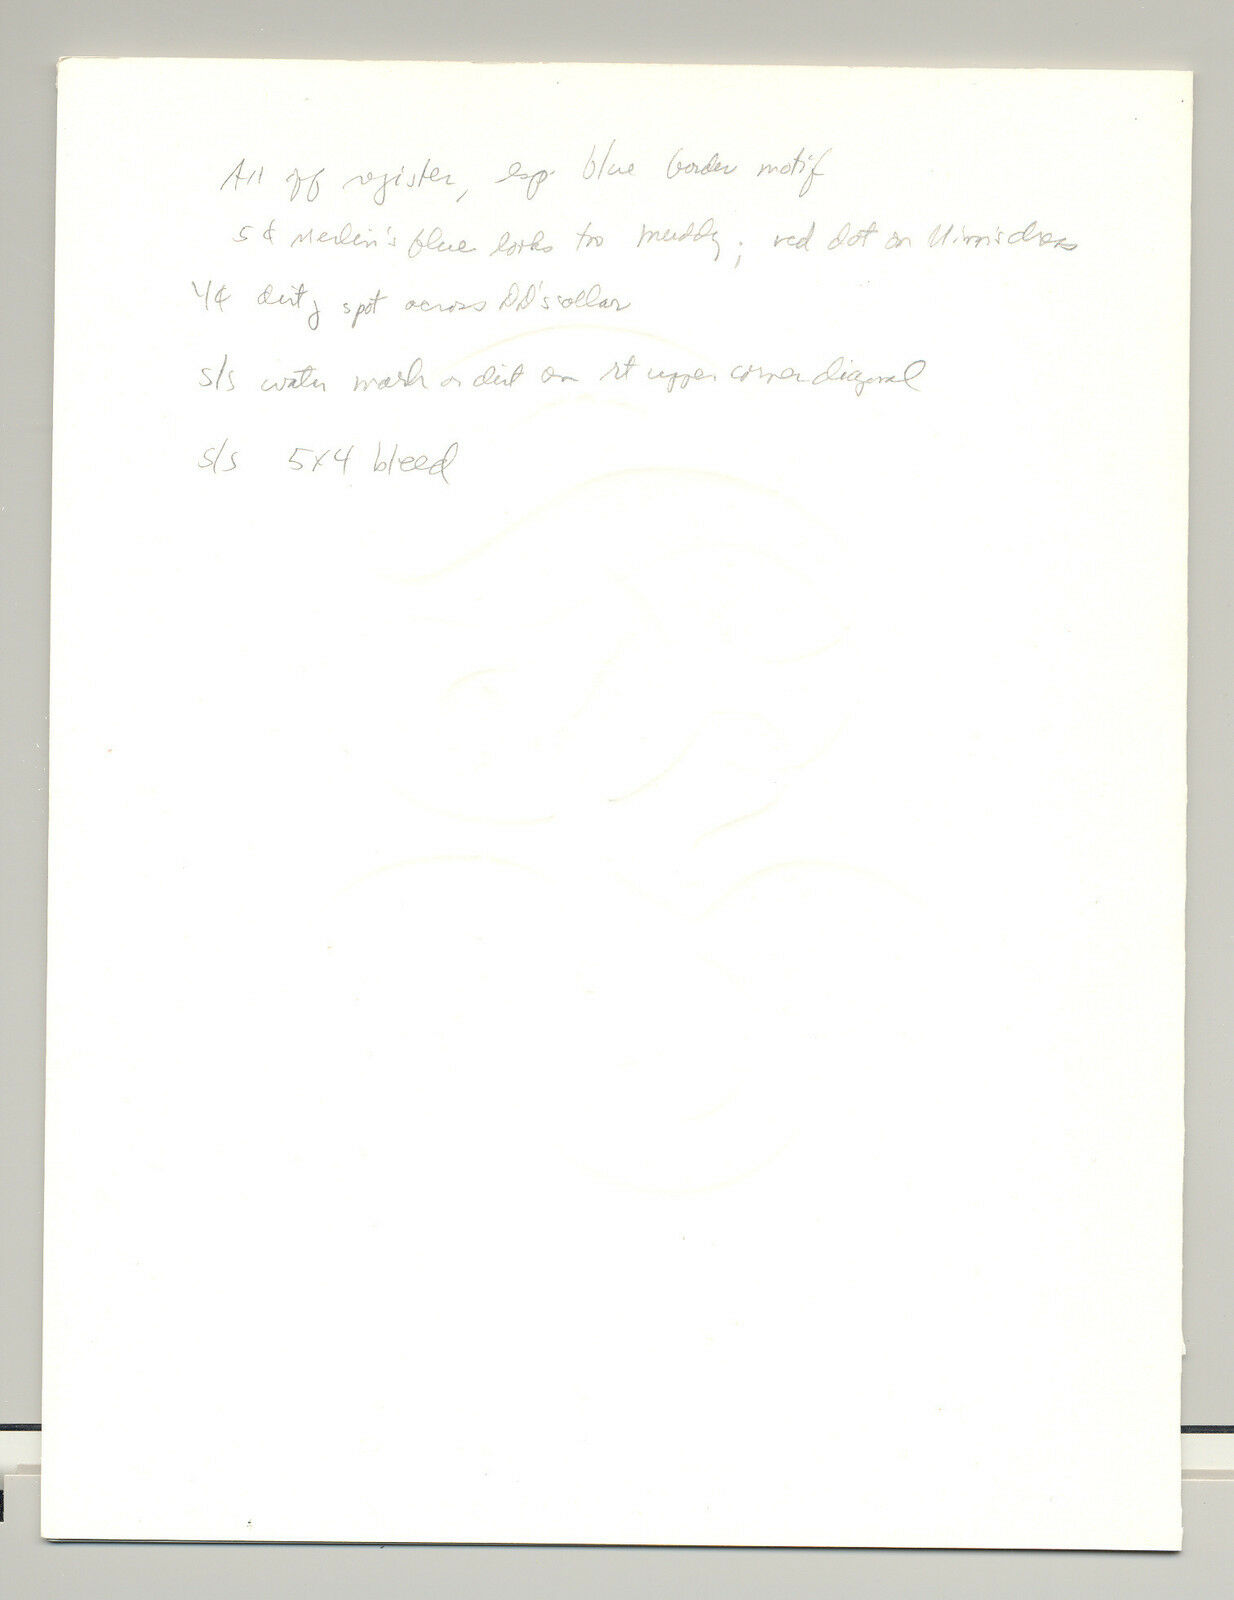 All off register, esp. blue border motif
5¢ Merlin's blue looks too muddy; red dot on Mim's dress
4¢ dirty spot across DD's collar
s/s water mark or dirt on rt upper corner diagonal
s/s 5x4 bleed